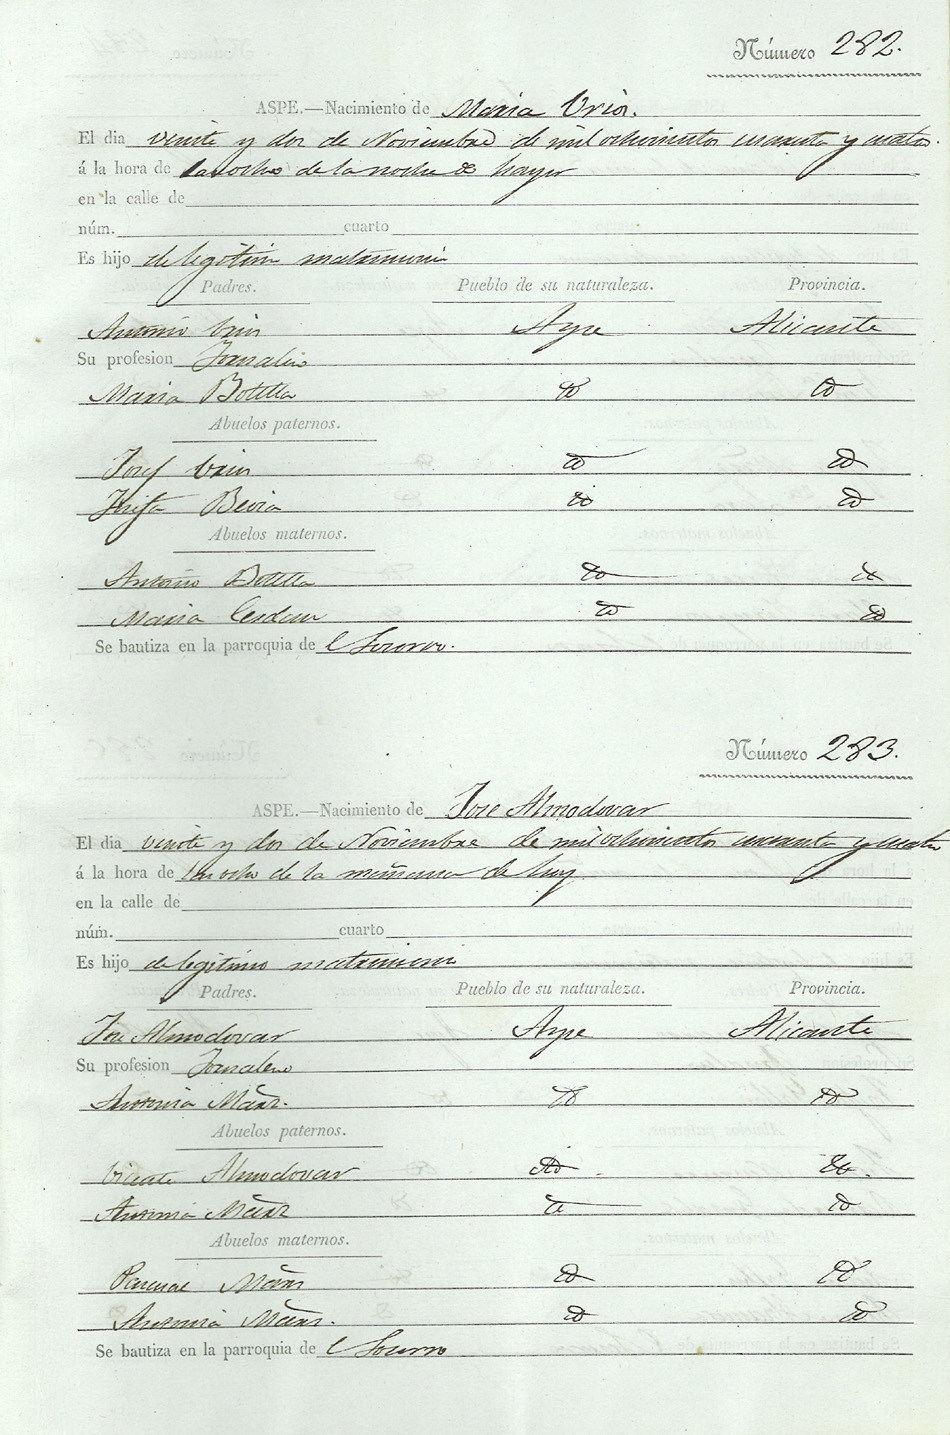 Número 282.
ASPE.—Nacimiento de Maria Urios.
El dia veinte y dos de Noviembre de mil ochocientos cuarenta y cuatro.
á la hora de las ocho de la noche de hayer
en la calle de
núm. cuarto
Es hijo de legitimo matrimonio
Padres. Pueblo de su naturaleza. Provincia.
Antonio Urios Aspe Alicante
Su profesion Jornalero
Maria Botella Yd Yd
Abuelos paternos.
Josef Urios Yd Yd
Josefa Bevia Yd Yd
Abuelos maternos.
Antonio Botella Yd Yd
Maria Cerdan Yd Yd
Se bautiza en la parroquia de l Socorro.
Número 283.
ASPE.—Nacimiento de Jose Almodovar
El dia veinte y dos de Noviembre de mil ochocientos cuarenta y cuatro
á la hora de las ocho de la mañana de hoy
en la calle de
núm. cuarto
Es hijo de legitimo matrimonio
Padres. Pueblo de su naturaleza. Provincia.
Jose Almodovar Aspe Alicante
Su profesion Jornalero
Antonia Mañz. Yd Yd
Abuelos paternos.
Vicente Almodovar Yd. Yd.
Antonia Mañz Yd Yd
Abuelos maternos.
Pascual Mañz Yd Yd
Antonia Mañz. Yd Yd
Se bautiza en la parroquia de l Socorro